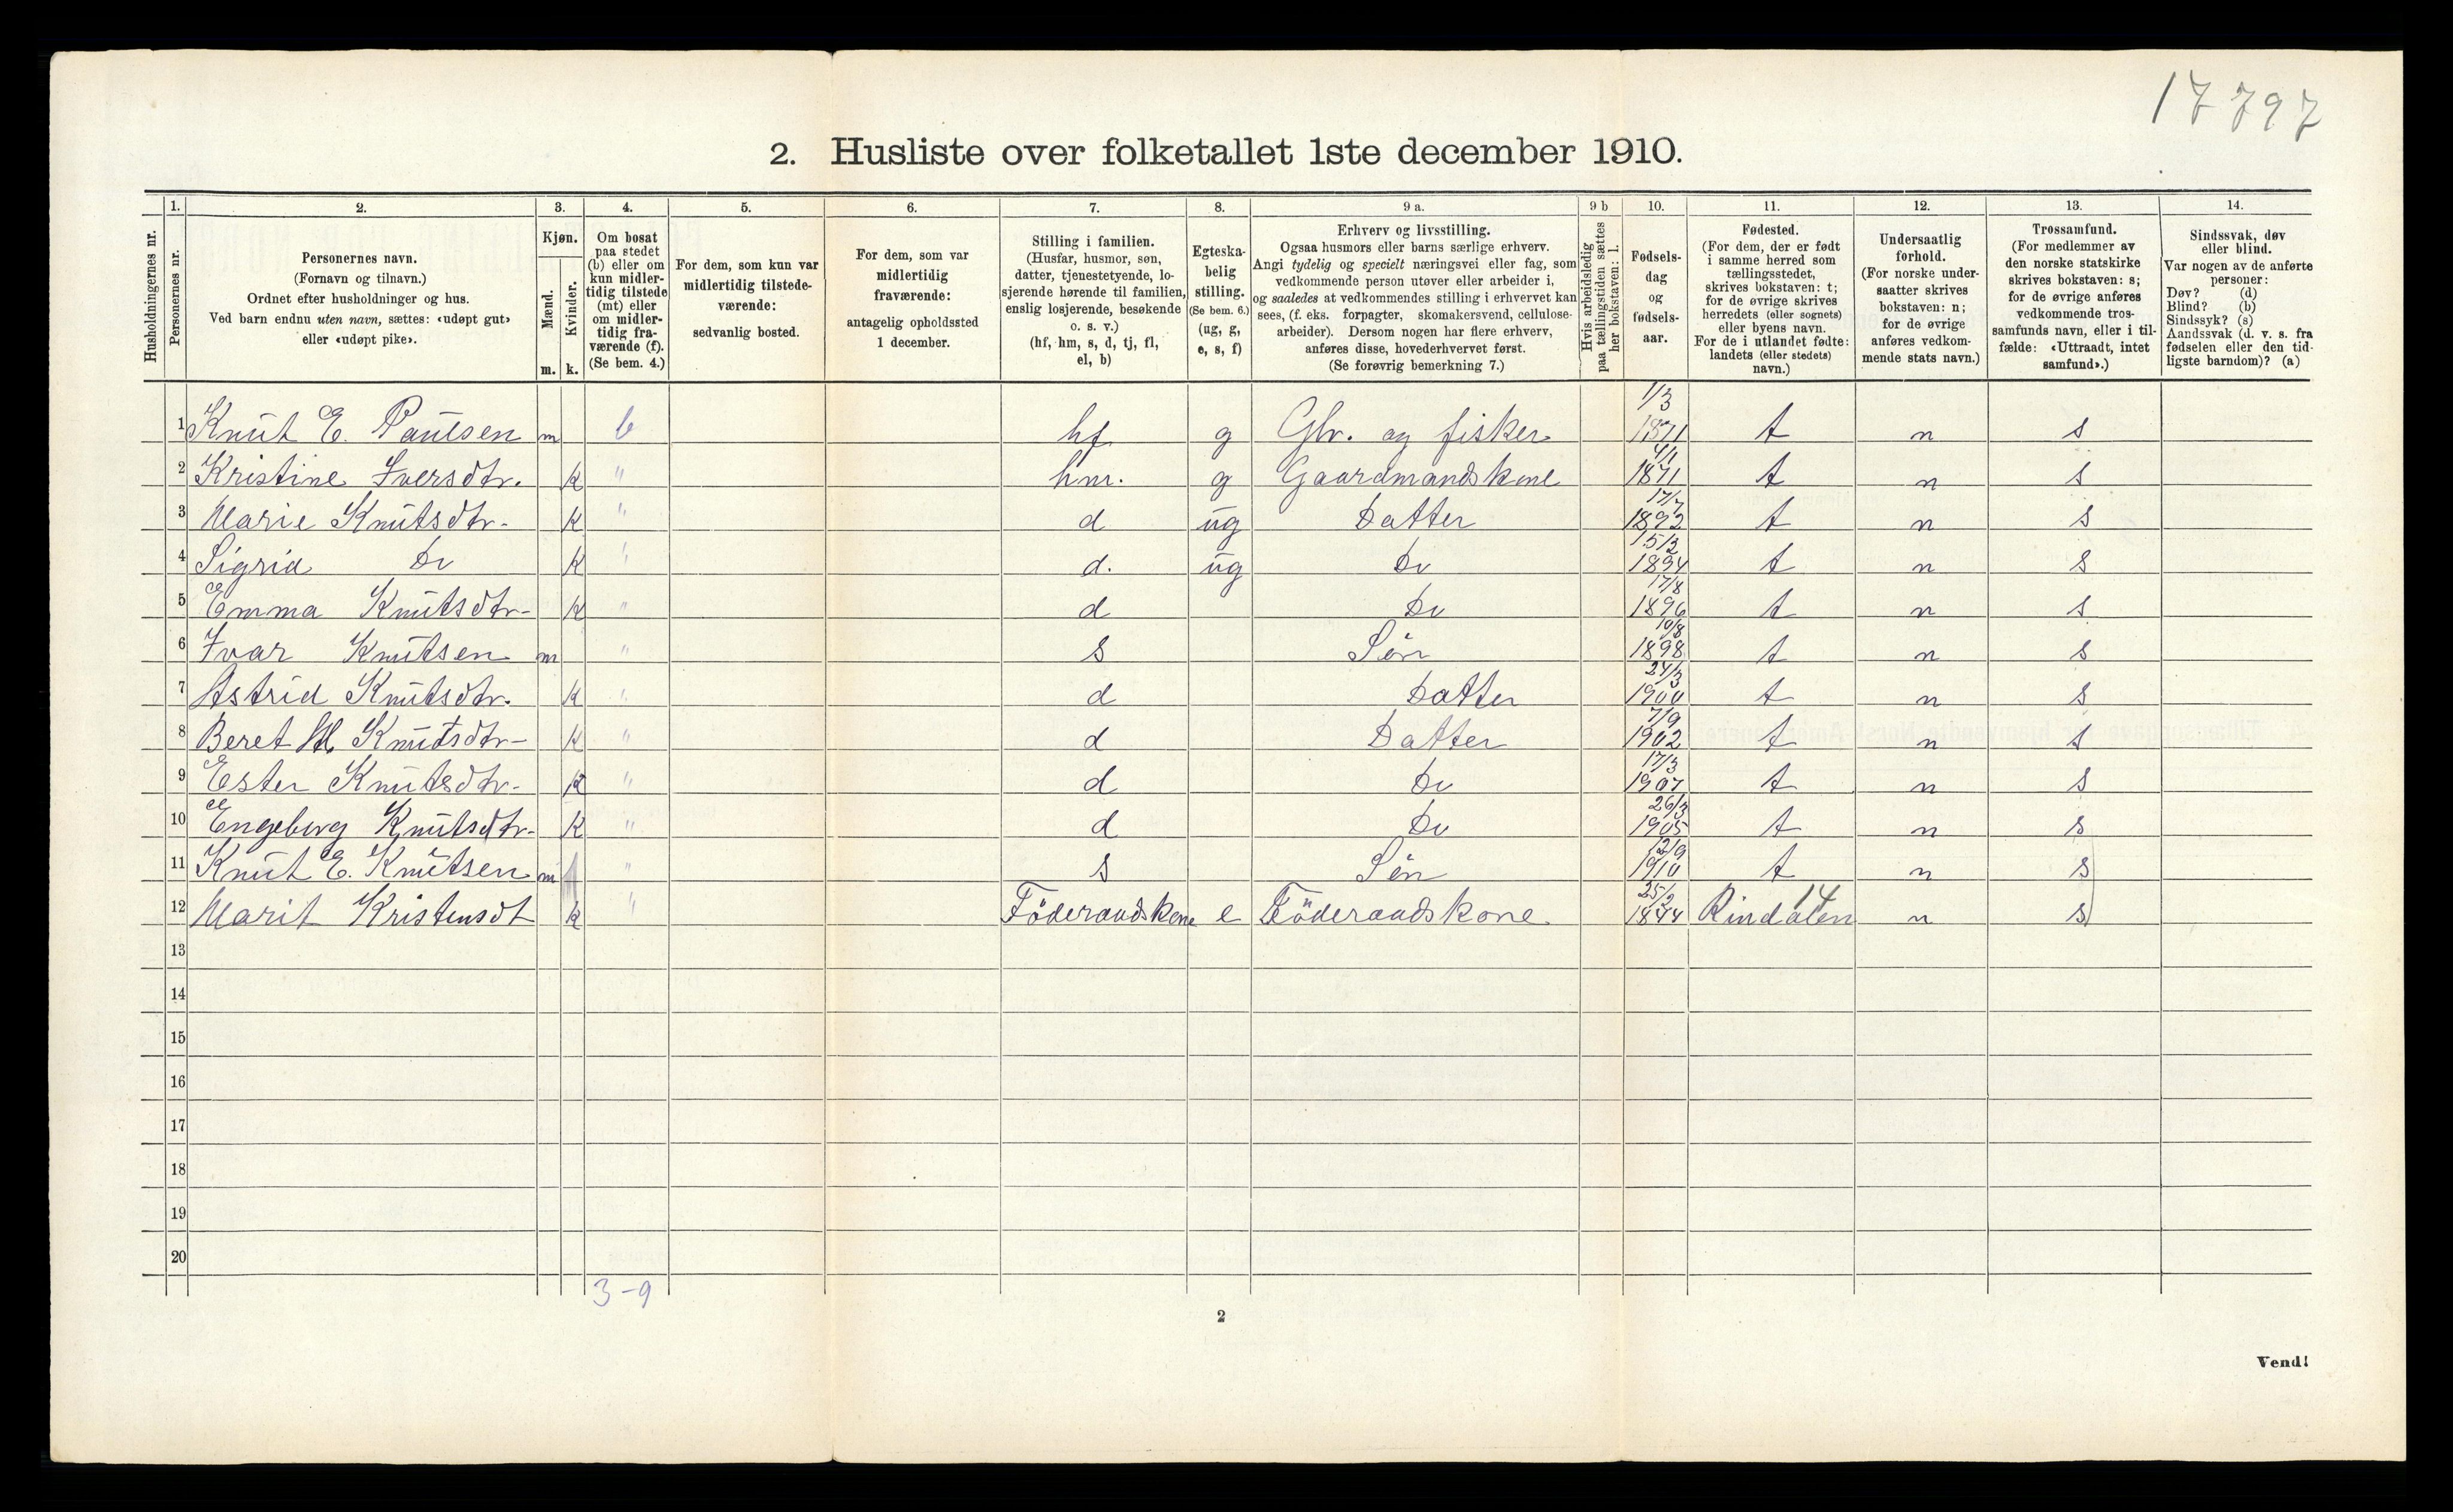 17797
2. Husliste over folketallet 1ste december 1910.
Husholdningernes nr.
1.
Personernes nr.
2.
Personernes navn.
(Fornavn og tilnavn.)
Ordnet efter husholdninger og hus.
Ved barn endnu uten navn, sættes: «udøpt gut»
eller «udøpt pike».
3.
Kjøn.
Mænd.
Kvinder.
m. k.
4.
Om bosat
paa stedet
(b) eller om
kun midler-
tidig tilstede
(mt) eller
om midler-
tidig fra-
værende (f).
(Se bem. 4.)
5.
For dem, som kun var
midlertidig tilstede-
værende:
sedvanlig bosted.
6.
For dem, som var
midlertidig
fraværende:
antagelig opholdssted
1 december.
7.
Stilling i familien.
(Husfar, husmor, søn,
datter, tjenestetyende, lo-
sjerende hørende til familien,
enslig losjerende, besøkende
o. s. v.)
(hf, hm, s, d, tj, fl,
el, b)
8.
Egteska-
belig
stilling.
(Se bem. 6.)
(ug, g,
e, s, f)
9 a.
Erhverv og livsstilling.
Ogsaa husmors eller barns særlige erhverv.
Angi tydelig og specielt næringsvei eller fag, som
vedkommende person utøver eller arbeider i,
og saaledes at vedkommendes stilling i erhvervet kan
sees, (f. eks. forpagter, skomakersvend, cellulose-
arbeider). Dersom nogen har flere erhverv,
anføres disse, hovederhvervet først.
(Se forøvrig bemerkning 7.)
9 b
Hvis arbeidsledig
paa tællingstiden sættes
her bokstaven: l.
10.
Fødsels-
dag
og
fødsels-
aar.
11.
Fødested.
(For dem, der er født
i samme herred som
tællingsstedet,
skrives bokstaven: t;
for de øvrige skrives
herredets (eller sognets)
eller byens navn.
For de i utlandet fødte:
landets (eller stedets)
navn.)
12.
Undersaatlig
forhold.
(For norske under-
saatter skrives
bokstaven: n;
for de øvrige
anføres vedkom-
mende stats navn.)
13.
Trossamfund.
(For medlemmer av
den norske statskirke
skrives bokstaven: s;
for de øvrige anføres
vedkommende tros-
samfunds navn, eller i til-
fælde: «Uttraadt, intet
samfund».)
14.
Sindssvak, døv
eller blind.
Var nogen av de anførte
personer:
Døv? (d)
Blind? (b)
Sindssyk? (s)
Aandssvak (d. v. s. fra
fødselen eller den tid-
ligste barndom)? (a)
1 Knut E. Paulsen m b hf g Gbr. og fisker 1/3 1871 t n s
2 Kristine Iversdtr. k " hm. g Gaardmandskone 4/1 1871 t n s
3 Marie Knutsdtr. k " d ug Datter 17/7 1892 t n s
4 Sigrid Do k " d. ug Do 15/2 1894 t n s
5 Emma Knutsdtr. k " d Do 17/8 1896 t n s
6 Ivar Knutsen m " s Søn 10/8 1898 t n s
7 Astrid Knutsdtr. k " d Datter 24/3 1900 t n s
8 Beret Knutsdtr. k " d Datter 7/9 1902 t n s
9 Ester Knutsdtr. k " d Do 17/3 1907 t n s
10 Engeborg Knutsdtr. k " d Do 26/3 1905 t n s
11 Knut E. Knutsen m " s Søn 12/9 1910 t n s
12 Marit Kristensdt k " Föderaadskone e Föderaadskone 25/2 1844 Rindalen 14 n s
13
14
15
16
17
18
19
20
3-9
2
Vend!